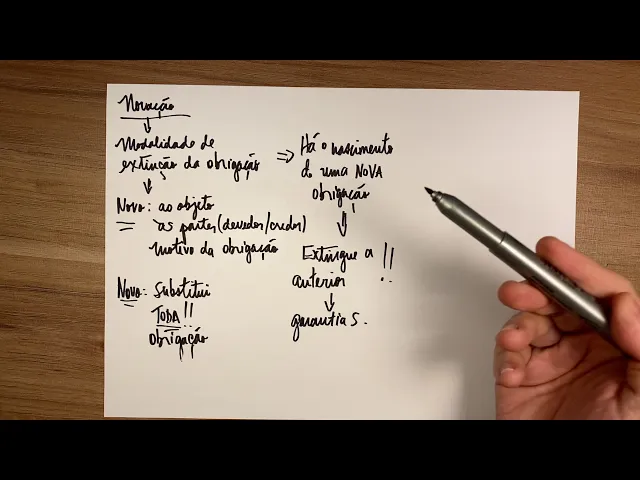 Novação
Modalidade de
extinção da obrigação
Novo: ao objeto
as partes (devedor/credor)
motivo da obrigação
Novo: Substitui
TODA!!
obrigação
⇒ Há o nascimento
de uma NOVA
obrigação
Extingue a !!
anterior
garantias.